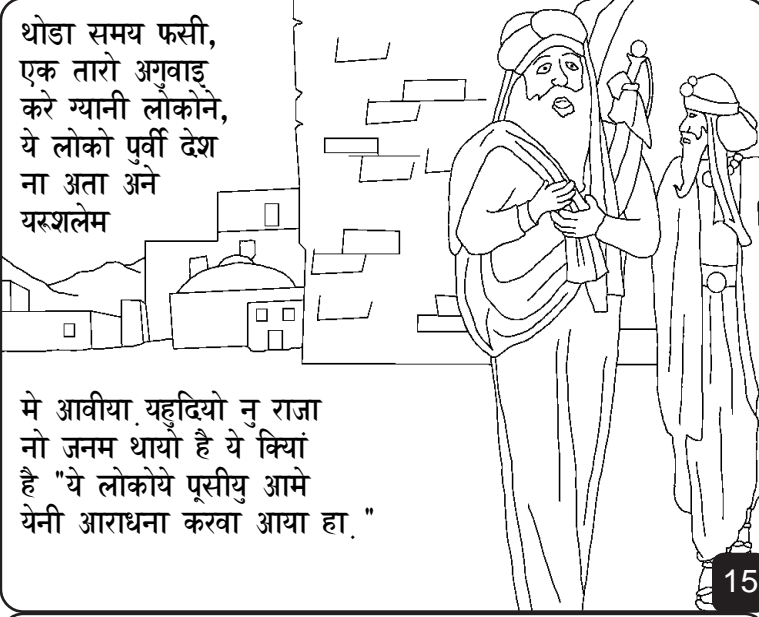 थोडा समय फसी,
एक तारो अगुवाइ
करे ग्यानी लोकोने,
ये लोको पुर्वी देश
ना अता अने
यरूशलेम
मे आवीया.यहुदियो नु राजा
नो जनम थायो है ये क्यिां
है "ये लोकोये पूसीयु आमे
येनी आराधना करवा आया हा."
15